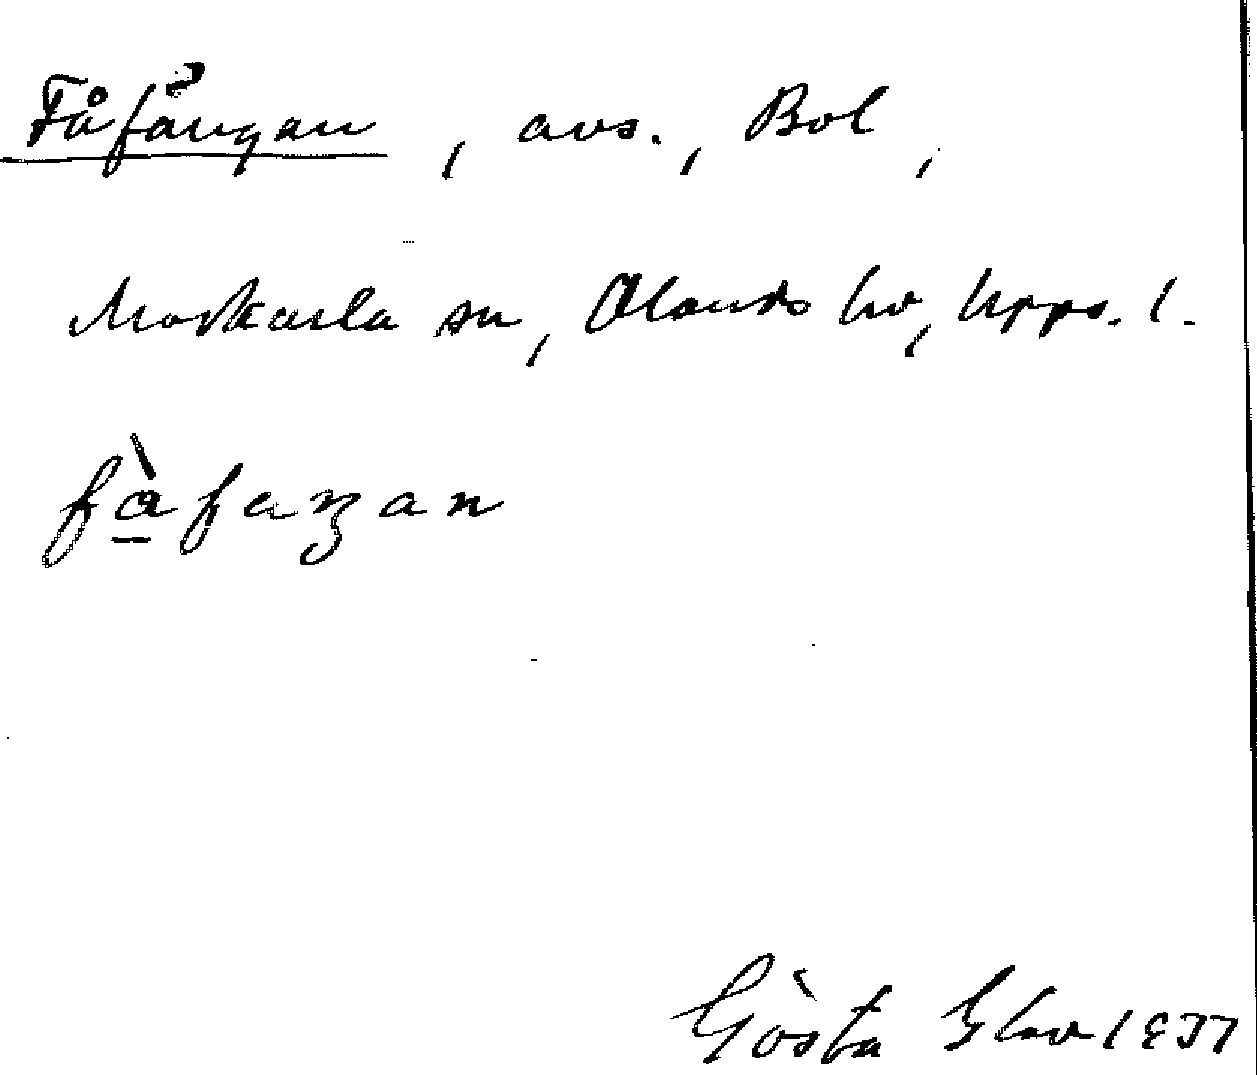 Fåfängan, avs., Bol,
Morkarla sn, Olands hd, Upps. l.
fàfaŋan
Gösta 1937